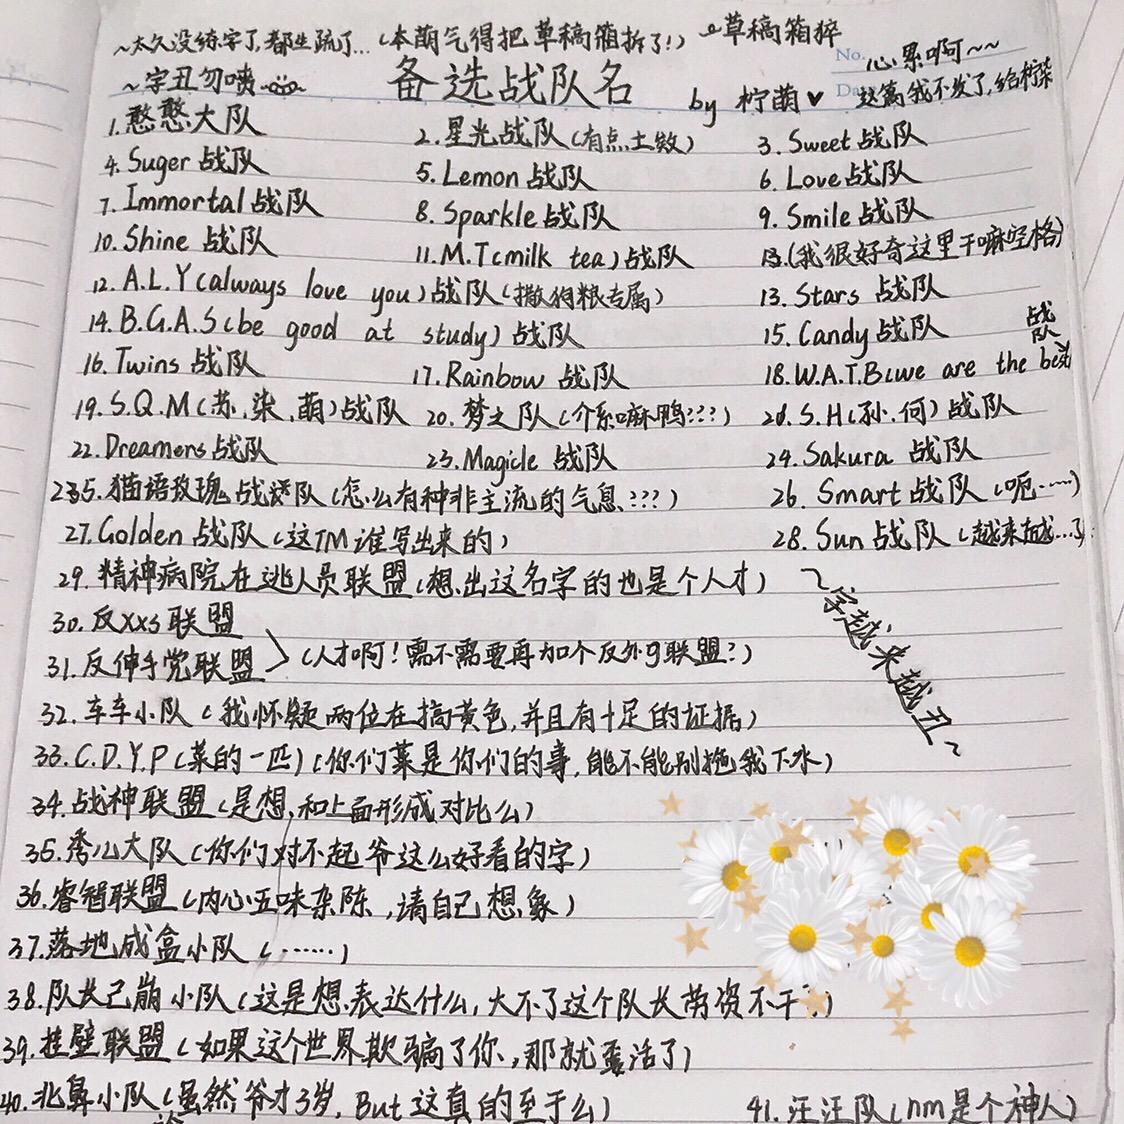 ~太久没练字了,都生疏了...(本萌气得把草稿箱拆了!) 草稿箱猝
~字丑勿喷~ No. 心累啊~~
备选战队名 by 柠萌♥ Da 这篇我不发了,给柠菜
1.憨憨大队 2.星光战队(有点土效) 3.Sweet战队
4.Suger战队 5.Lemon战队 6.Love战队
7.Immortal战队 8.Sparkle战队 9.Smile战队
10.Shine战队 11.M.T(milk tea)战队 (我很好奇这里干嘛空格)
12.A.L.Y(always love you)战队(撒狗粮专属) 13.Stars战队
14.B.G.A.S(be good at study)战队 15.Candy战队
16.Twins战队 17.Rainbow战队 18.W.A.T.B(we are the best 战队
19.S.Q.M(苏.柒.萌)战队 20.梦之队(介系嘛鸭???) 21.S.H(孙.何)战队
22.Dreamers战队 23.Magicle战队 24.Sakura战队
25.猫语玫瑰战队(怎么有种非主流的气息???) 26.Smart战队(呃……)
27.Golden战队(这TM谁写出来的) 28.Sun战队(越来越...了)
29.精神病院在逃人员联盟(想出这名字的也是个人才)
~字越来越丑~
30.反xxs联盟
31.反伸手党联盟 (人才啊!需不需要再加个反外g联盟?)
32.车车小队(我怀疑两位在搞黄色,并且有十足的证据)
33.C.D.Y.P(菜的一匹)(你们菜是你们的事,能不能别拖我下水)
34.战神联盟(是想和上面形成对比么)
35.秀儿大队(你们对不起爷这么好看的字)
36.睿智联盟(内心五味杂陈,请自己想象)
37.落地成盒小队(……)
38.队长已崩小队(这是想表达什么,大不了这个队长劳资不干了)
39.挂壁联盟(如果这个世界欺骗了你,那就蛋活了)
40.北鼻小队(虽然爷才3岁,But这真的至于么) 41.汪汪队(nm是个神人)